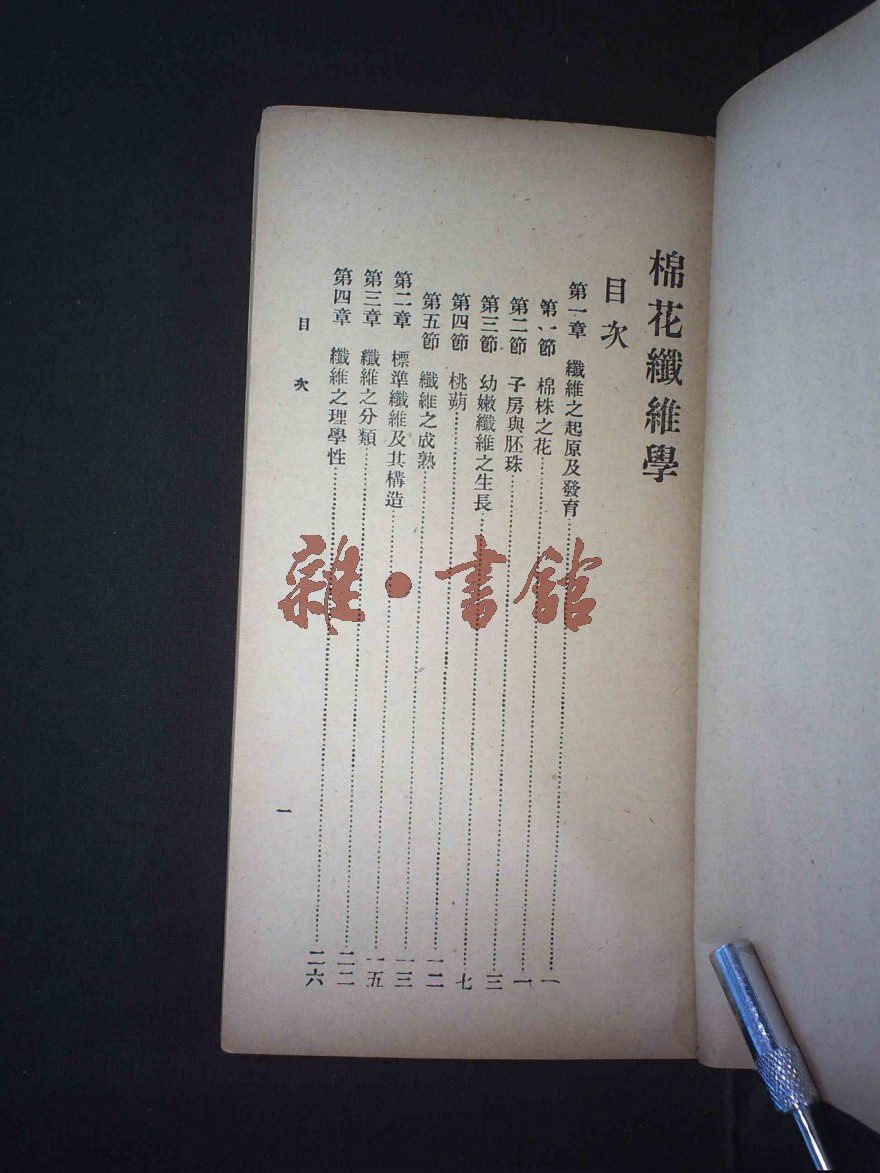 棉花纖維學
目次
第一章 纖維之起原及發育……一
第一節 棉株之花……一
第二節 子房與胚珠……三
第三節 幼嫩纖維之生長……七
第四節 桃蒴……一二
第五節 纖維之成熟……一三
第二章 標準纖維及其構造……一五
第三章 纖維之分類……二二
第四章 纖維之理學性……二六
目次
一
雜·書館